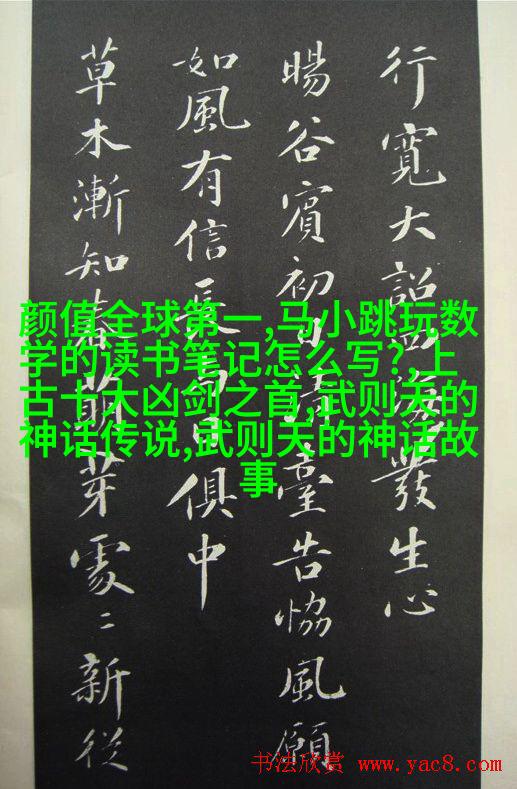 行寬大詔四海發生心
暘谷賓初日清臺告協風願
如風有信長與日俱中
草木漸知春萌芽處々新從
颜值全球第一,马小跳玩数
学的读书笔记怎么写?,上
古十大凶剑之首,武则天的
神话传说,武则天的神话故
事
书法欣赏 www.yac8.com